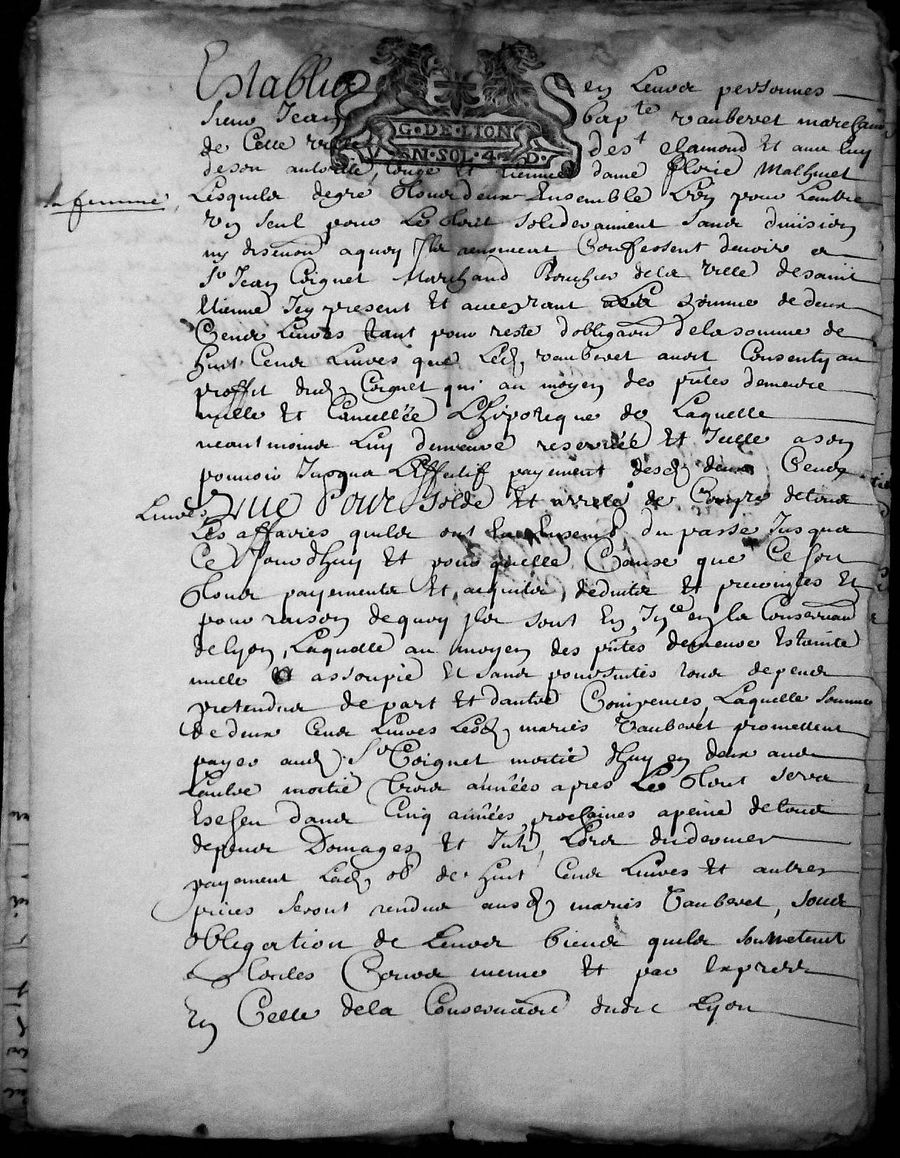 Establis en Leurs personnes
Sieur Jean bapte vauberet marchand
G·DE·LION
de Cette ville dest chamond et avec luy
VN·SOL·4·D·
deson authorité, congé et licence dame florie Mathevet
sa femme,
Lesquels degré tous deux Ensemble L'un pour Lautre
Un seul pour Le tout solidairement sans division
ny disention aquoy Ils renoncent Confessent devoir a
Sr Jean Coignet Marchand Boucher de la ville desaint
Etienne Icy present et acceptant la somme dedeux
Cents Livres tant pour reste dobligaon delasomme de
huit Cents Livres que Led. vauberet avoit Consenty au
proffit dud. Coignet qui au moyen des pntes demeure
nulle et Cancellée Lhipoteque de Laquelle
neantmoins Luy demeure reservée et Icelle a son
pouvoir Jusqua Leffectif payement desd. deux Cents
Livres, Que Pour Solde et arreté de Compte detous
Les affaires quils ont eu Ensemble du passé Jusques
Ce Jourdhuy et pour quelle Cause que Ce soit
tous payements et acquits, deduits et precomptés et
pour raison dequoy Ils sont En Jnce en la Conservaon
de Lyon, Laquelle au moyen des pntes demeure Esteinte
nulle assoupie et sans poursuites tous depens
pretendus de part et dautre Compensés, Laquelle somme
de deux Cents Livres Lesd. mariés Vauberet promettent
payer aud. Sr Coignet moitié dhuy en deux ans
Lautre moitié trois années apres Le tout sera
dans Cinq années prochaines apeine detous
depens Domages et Inth Lors dudernier
payement Lad. ob de huit Cents Livres et autres
pieces seront rendus ausd. mariés Vauberet, sous
obligation de Leurs biens quils soumetent
a toutes Cours meme et par Expres
En Celle dela Conservation dudit Lyon